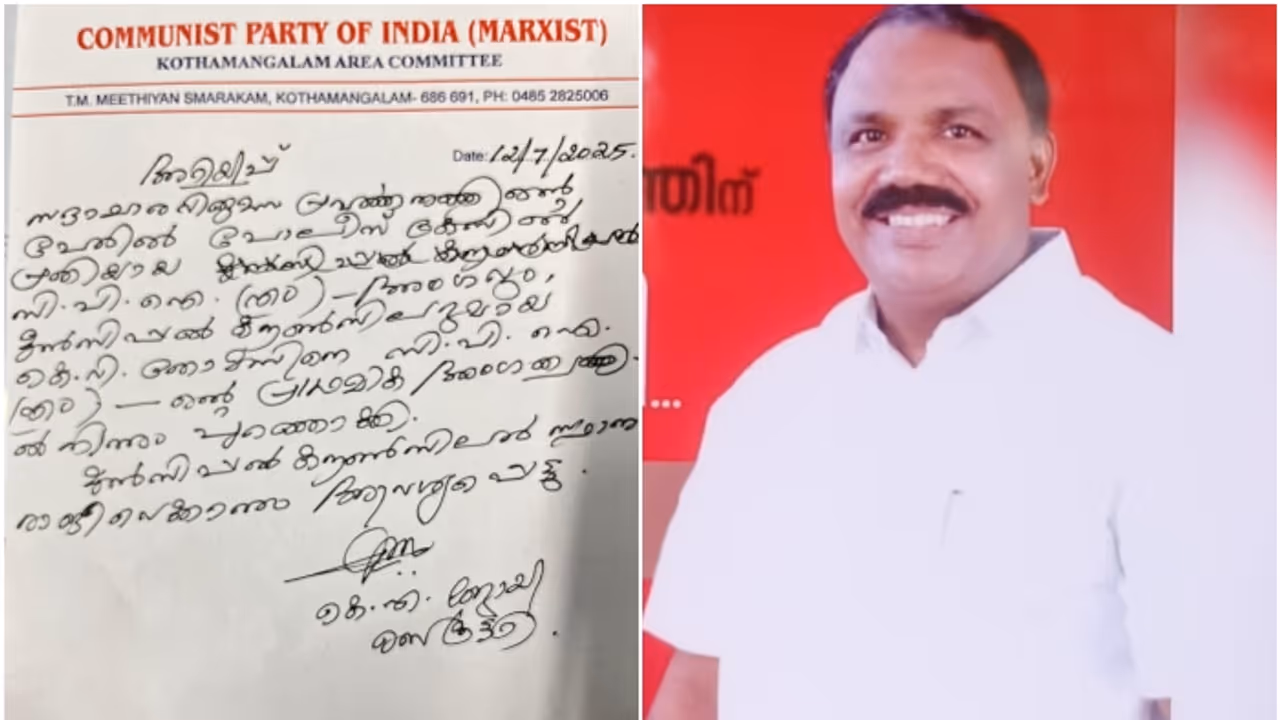 COMMUNIST PARTY OF INDIA (MARXIST)
KOTHAMANGALAM AREA COMMITTEE
T.M. MEETHIYAN SMARAKAM, KOTHAMANGALAM- 686 691, PH: 0485 2825006
Date: 12/7/2025.
അറിയിപ്പ്
സദാചാര വിരുദ്ധ പ്രവർത്തനത്തിൻ്റെ
പേരിൽ പോലീസ് കേസിൽ
പ്രതിയായ
സി.പി.ഐ. (എം) – അംഗവും,
മുൻസിപ്പൽ കൗൺസിലറുമായ
കെ.വി. തോമസിനെ സി.പി.ഐ.
(എം) – ൻ്റെ പ്രാഥമിക അംഗത്വത്തി-
ൽ നിന്നും പുറത്താക്കി.
മുൻസിപ്പൽ കൗൺസിലർ സ്ഥാനം
രാജിവെക്കാനും ആവശ്യപ്പെട്ടു.
കെ.എ. ജോയി
സെക്രട്ടറി.
ത്തിന്
...